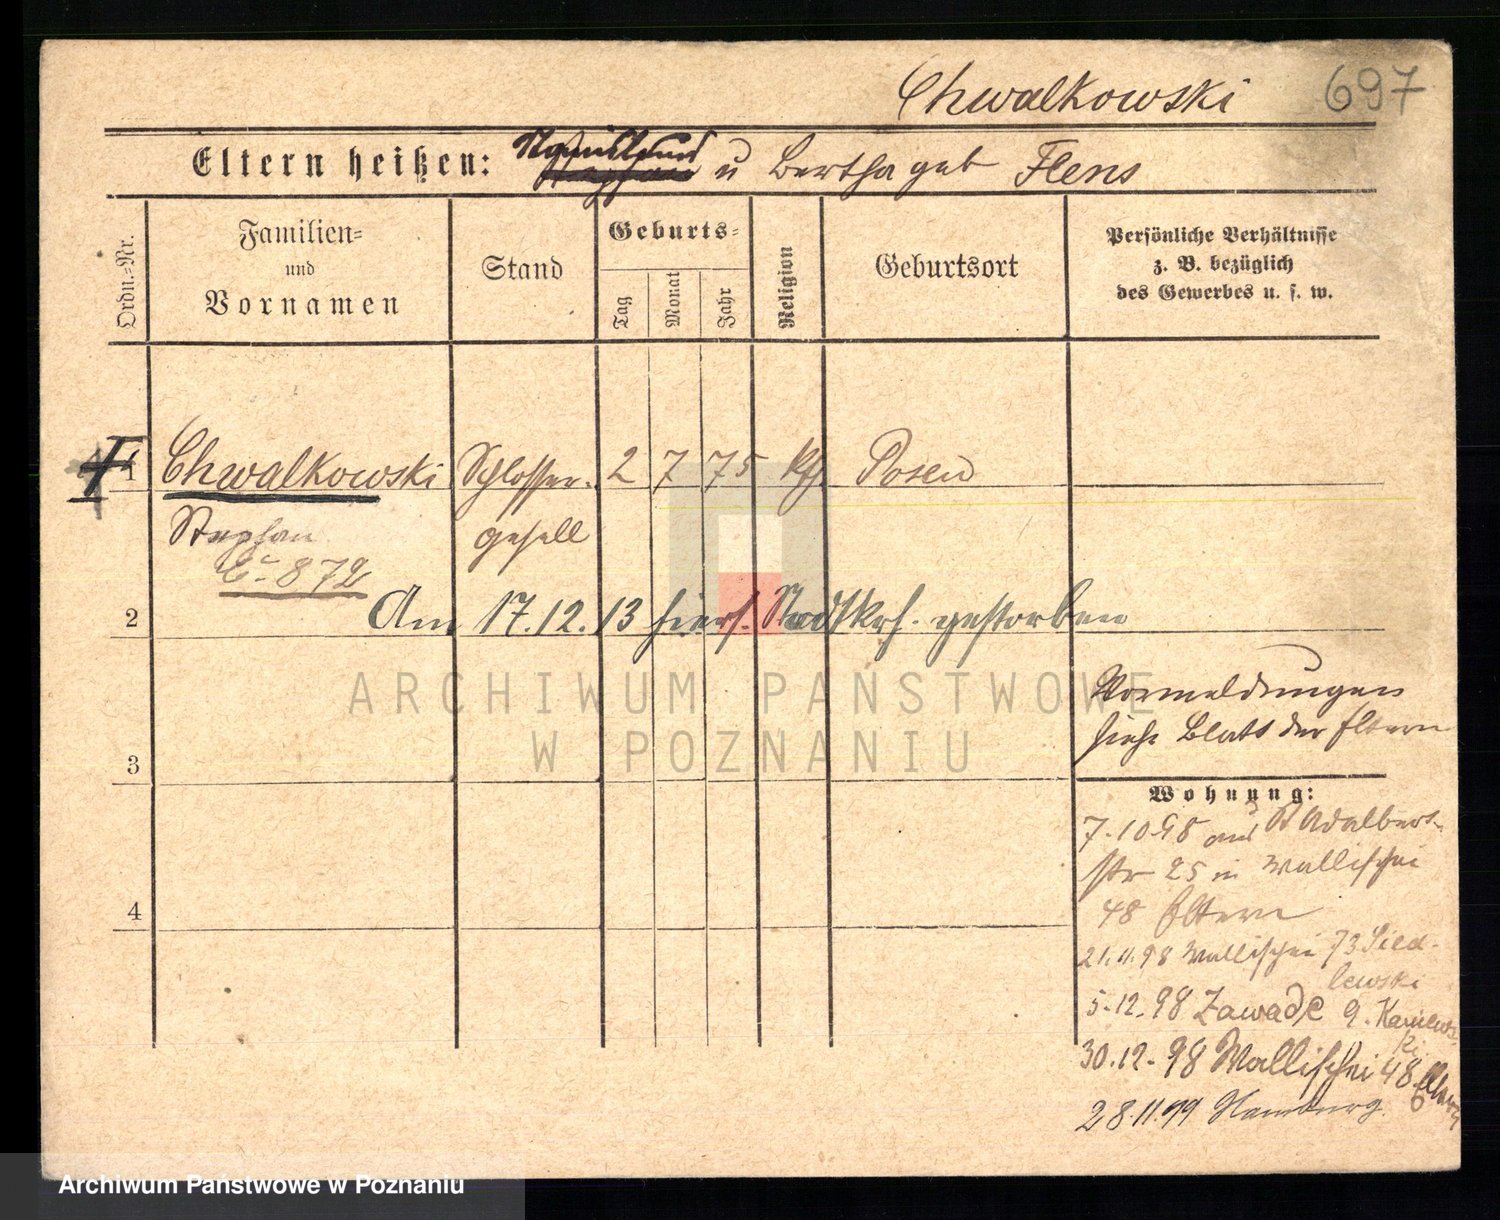 Chwalkowski 697
Eltern heißen: u Bertha geb Flens
Ordn.=Nr.
Familien=
und
Vornamen
Stand
Geburts=
Tag
Monat
Jahr
Religion
Geburtsort
Persönliche Verhältnisse
z. B. bezüglich
des Gewerbes u. s. w.
1 Chwalkowski Schlosser- 2 7 75 kth. Posen
Stephan gesell
872
2 Am 17.12.13 hiers. Stadtkrh. gestorben
Vormeldungen
siehe Blatt der Eltern
3
Wohnung:
7.10.98 aus St Adalbert-
str 25 in Wallischei
4
48 Eltern
21.11.98 Wallischei 73 Sied-
lewski
5.12.98 Zawade 9.
30.12.98 Wallischei 48 Eltern
28.11.99 Hamburg.
ARCHIWUM PAŃSTWOWE
W POZNANIU
Archiwum Państwowe w Poznaniu